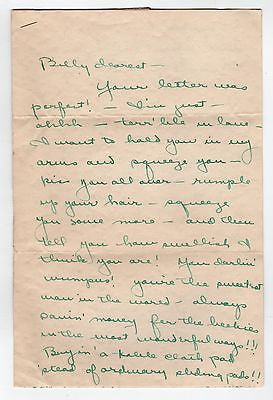 Billy dearest –
Your letter was
perfect! – I'm just –
ohhh – terr'ble in love –
I want to hold you in my
arms and squeeze you –
kiss you all over – rumple
up your hair – squeeze
you some more – and then
tell you how swellish I
think you are! You darlin'
wumpus! you're the sweetest
man in the world – always
savin' money for the
in the most wonderful ways!!
Buyin' a table cloth pad
'stead of ordinary sliding pads!!